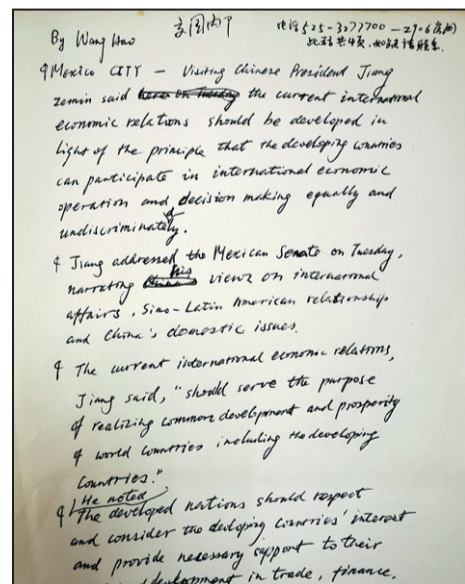 交周内平
电话525-3277700—2906房间
此稿共4页,如缺请联系.
By Wang Hao
Mexico CITY — Visiting Chinese President Jiang
zemin said here on Tuesday the current international
economic relations should be developed in
light of the principle that the developing countries
can participate in international economic
operation and decision making equally and
undiscriminately.
Jiang addressed the Mexican Senate on Tuesday,
narrating his views on international
affairs, Sino-Latin American relationship
and China's domestic issues.
The current international economic relations,
Jiang said, "should serve the purpose
of realizing common development and prosperity
of world countries including the developing
countries."
He noted
The developed nations should respect
and consider the devloping countries' interest
and provide necessary support to their
development in trade, finance,